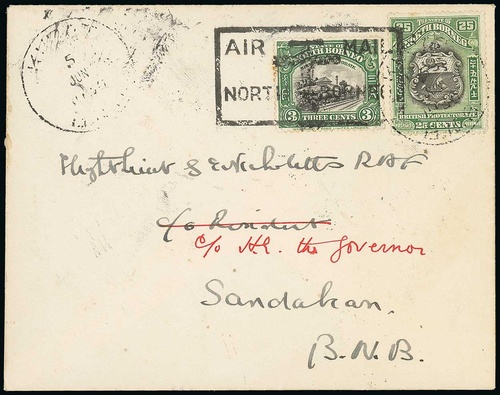 5
JUN
AIR MAIL
NORTH BORNEO
STATE OF
NORTH BORNEO
3 3
THREE CENTS
25 25
THE STATE OF
NORTH BORNEO
BRITISH PROTECTORATE
25 CENTS
Flight Lieut S E Nicholetts RAF
c/o Resident
c/o H.E. the Governor
Sandakan.
B.N.B.